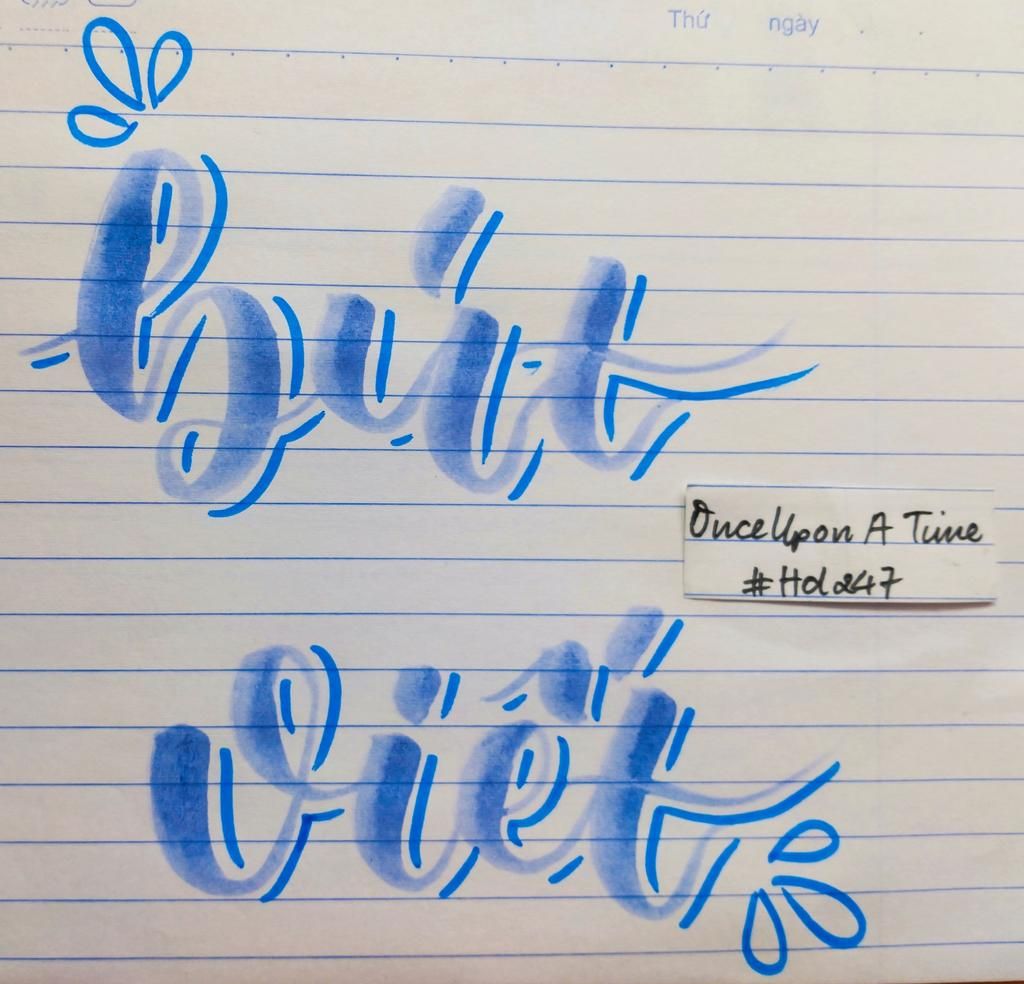 Thứ ngày
bút
OnceUpon A Time
#Hd247
viết